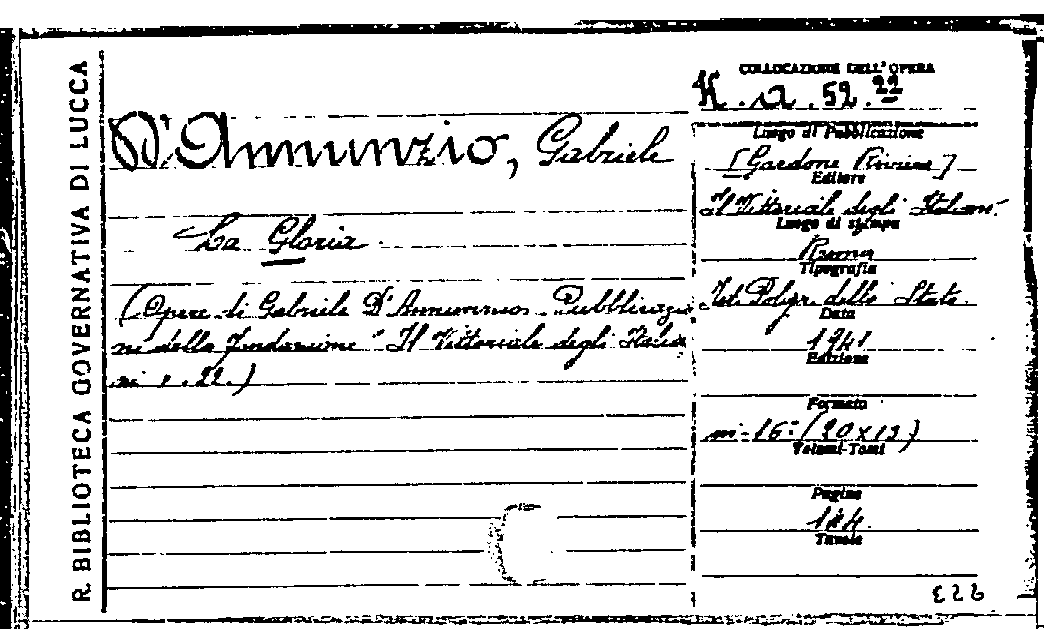 R. BIBLIOTECA GOVERNATIVA DI LUCCA
D'Annunzio, Gabriele
La Gloria
(Opere di Gabriele D'Annunzio. Pubblicazio
ni della Fondazione "Il Vittoriale degli Italia
ni", 22.)
COLLOCAZIONE DELL'OPERA
K. a. 52. 22
Luogo di Pubblicazione
[Gardone Riviera]
Editore
Il Vittoriale degli Italiani.
Luogo di stampa
Roma
Tipografia
Ist. Poligr. dello Stato.
Data
1941
Edizione
Formato
in-16° (20x13)
Volumi-Tomi
Pagine
124.
Tavole